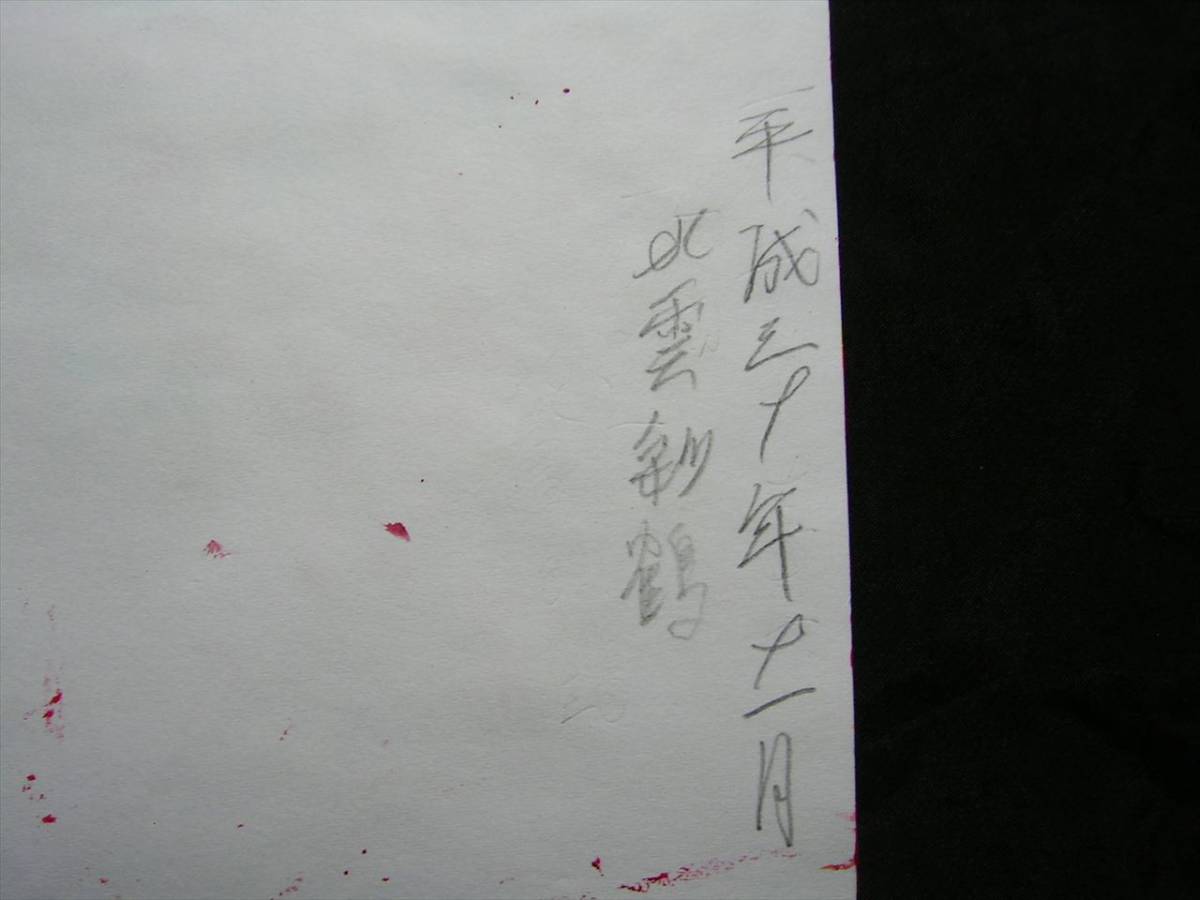 平成三十年十一月
雲 鶴